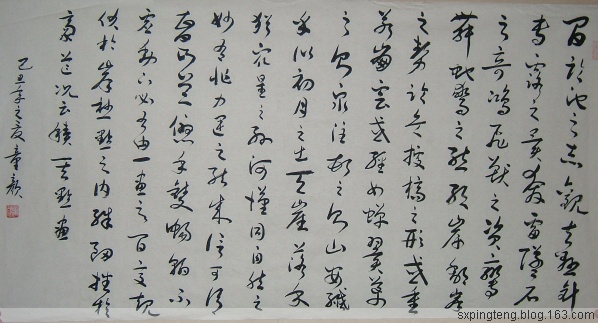 間臨池之志觀夫懸針
垂露之異奔雷墜石
之奇鴻飛獸之資鸞
舞蛇驚之態絕岸頹峰
之勢臨危據槁之形或重
若崩雲或輕如蟬翼導
之則泉注頓之則山安纖
乎似初月之出天崖落乎
猶衆星之列河漢同自然之
妙有非力運之能成信可謂
智巧兼優心手雙暢翰不
虛動下必有由一畫之間變起
伏於峰杪一點之內殊衄挫於
毫芒況云積其點畫
己丑年之夏
sxpingteng.blog.163.com